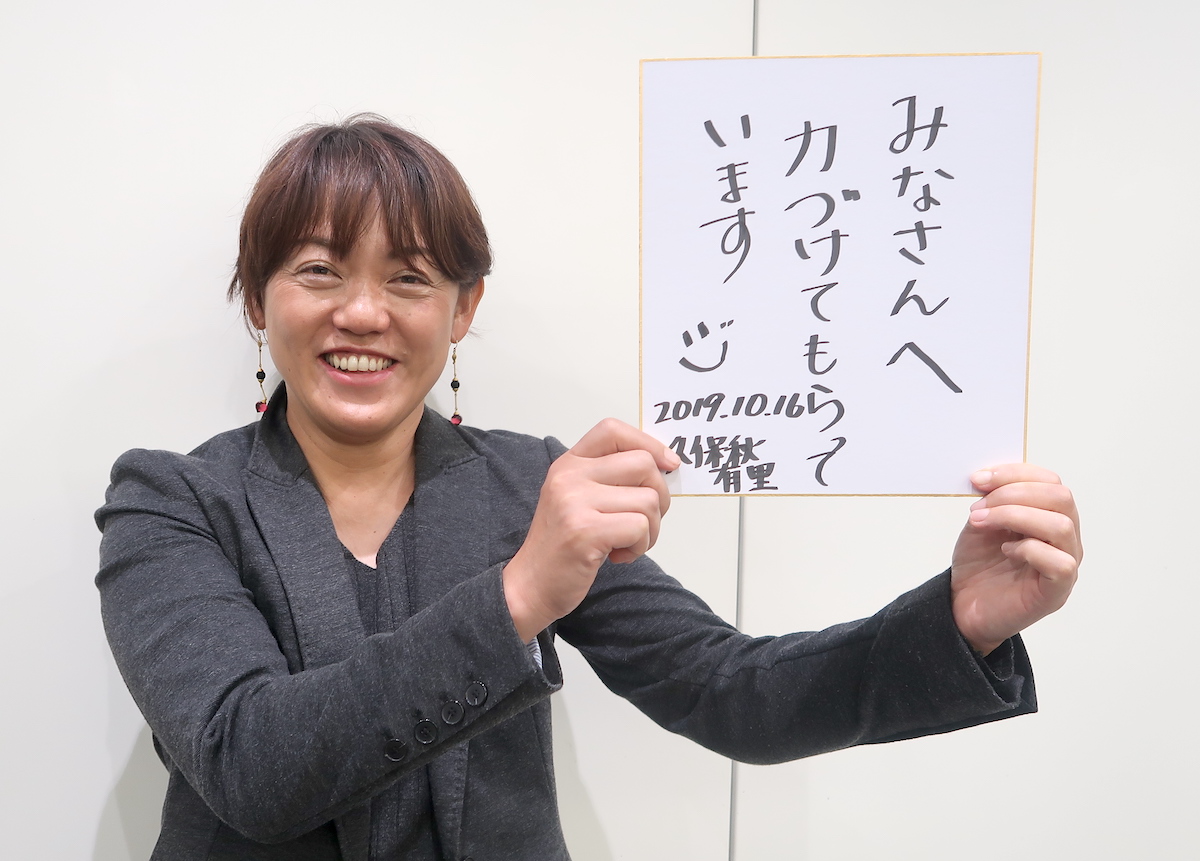 みなさんへ
力づけてもらって
います
2019.10.16
久保秋
有里